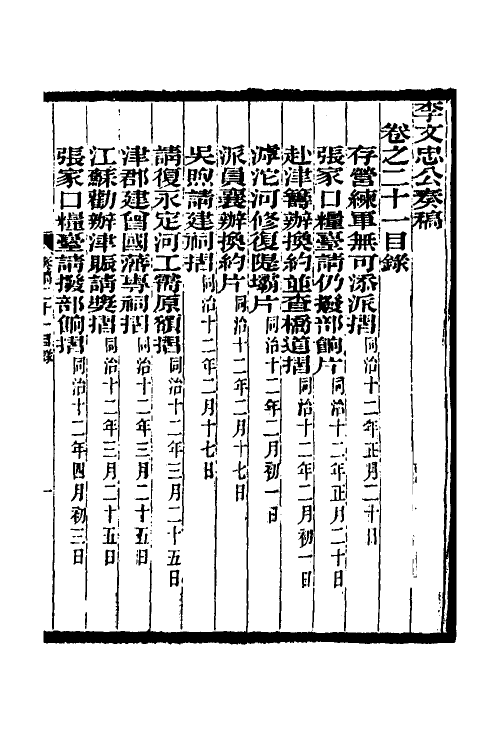 李文忠公奏稿
卷之二十一目錄
存營練軍無可添派摺同治十二年正月二十日
張家口糧臺請仍撥部餉片同治十二年正月二十日
赴津籌辦換約並查橋道摺同治十二年二月初一日
滹沱河修復隄壩片同治十二年二月初一日
派員襄辦換約片同治十二年二月十七日
吳煦請建祠摺同治十二年二月十七日
請復永定河工需原額摺同治十二年三月二十五日
津郡建曾國藩專祠摺同治十二年三月二十五日
江蘇勸辦津賑請獎摺同治十二年三月二十五日
張家口糧臺請撥部餉摺同治十二年四月初三日
奏稿二十一目錄
一